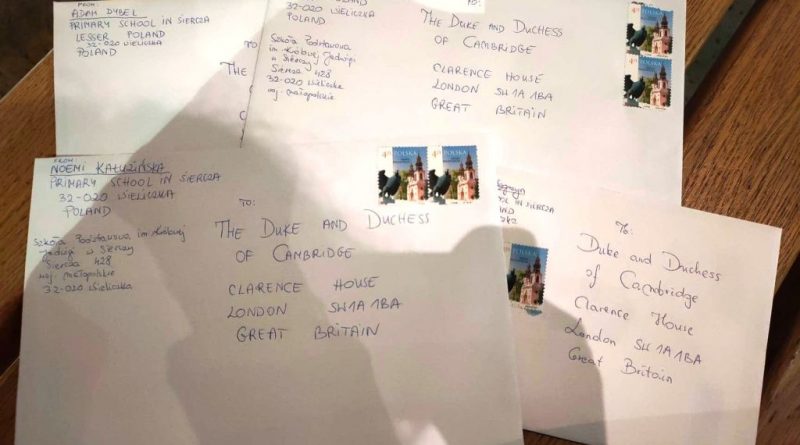 FROM:
ADAM DYBEL
PRIMARY SCHOOL IN SIERCZA
LESSER POLAND
32-020 WIELICZKA
POLAND
TO
THE
32-020 WIELICZKA
POLAND
Szkoła Podstawowa
im Królowej Jadwigi
w Sierczy
Siercza 428
32-020 Wieliczka
woj. małopolskie
TO:
THE DUKE AND DUCHESS
OF CAMBRIDGE
CLARENCE HOUSE
LONDON SW1A 1BA
GREAT BRITAIN
FROM
NOEMI KAŁUZIŃSKA
PRIMARY SCHOOL IN SIERCZA
32-020 WIELICZKA
POLAND
Szkoła Podstawowa im Królowej
Jadwigi w Sierczy
Siercza 428
woj. małopolskie
32-020 Wieliczka
POLSKA
POLSKA
TO:
THE DUKE AND DUCHESS
OF CAMBRIDGE
CLARENCE HOUSE
LONDON SW1A 1BA
GREAT BRITAIN
IN SIERCZA
TO:
Duke and Duchess
of Cambridge
Clarence House
London SW1A 1BA
Great Britain